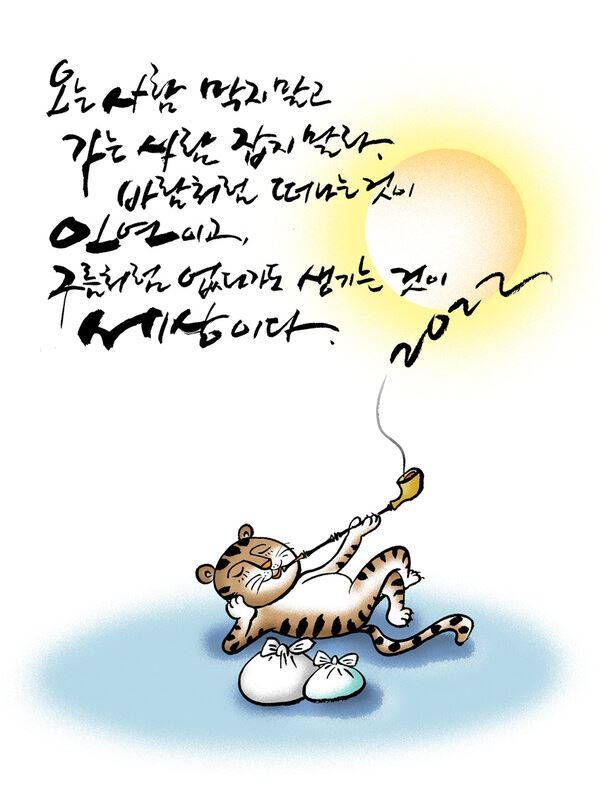 오는 사람 막지말고
가는 사람 잡지 말라.
바람처럼 떠나는것이
인연이고,
구름처럼 없다가도 생기는 것이
세상이다.
2022